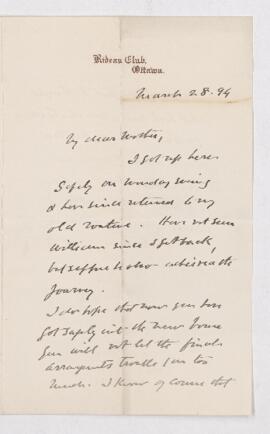 Rideau Club,
Ottawa.
March 28. 94
My dear Mother,
I got up here
safely on Monday evening
& have since returned to my
old routine. Have not seen
since I got back,
but suppose he also the
journey.
I do hope that now you have
got safely into the new house
you will not let the final
arrangements trouble you too
much. I know of course that